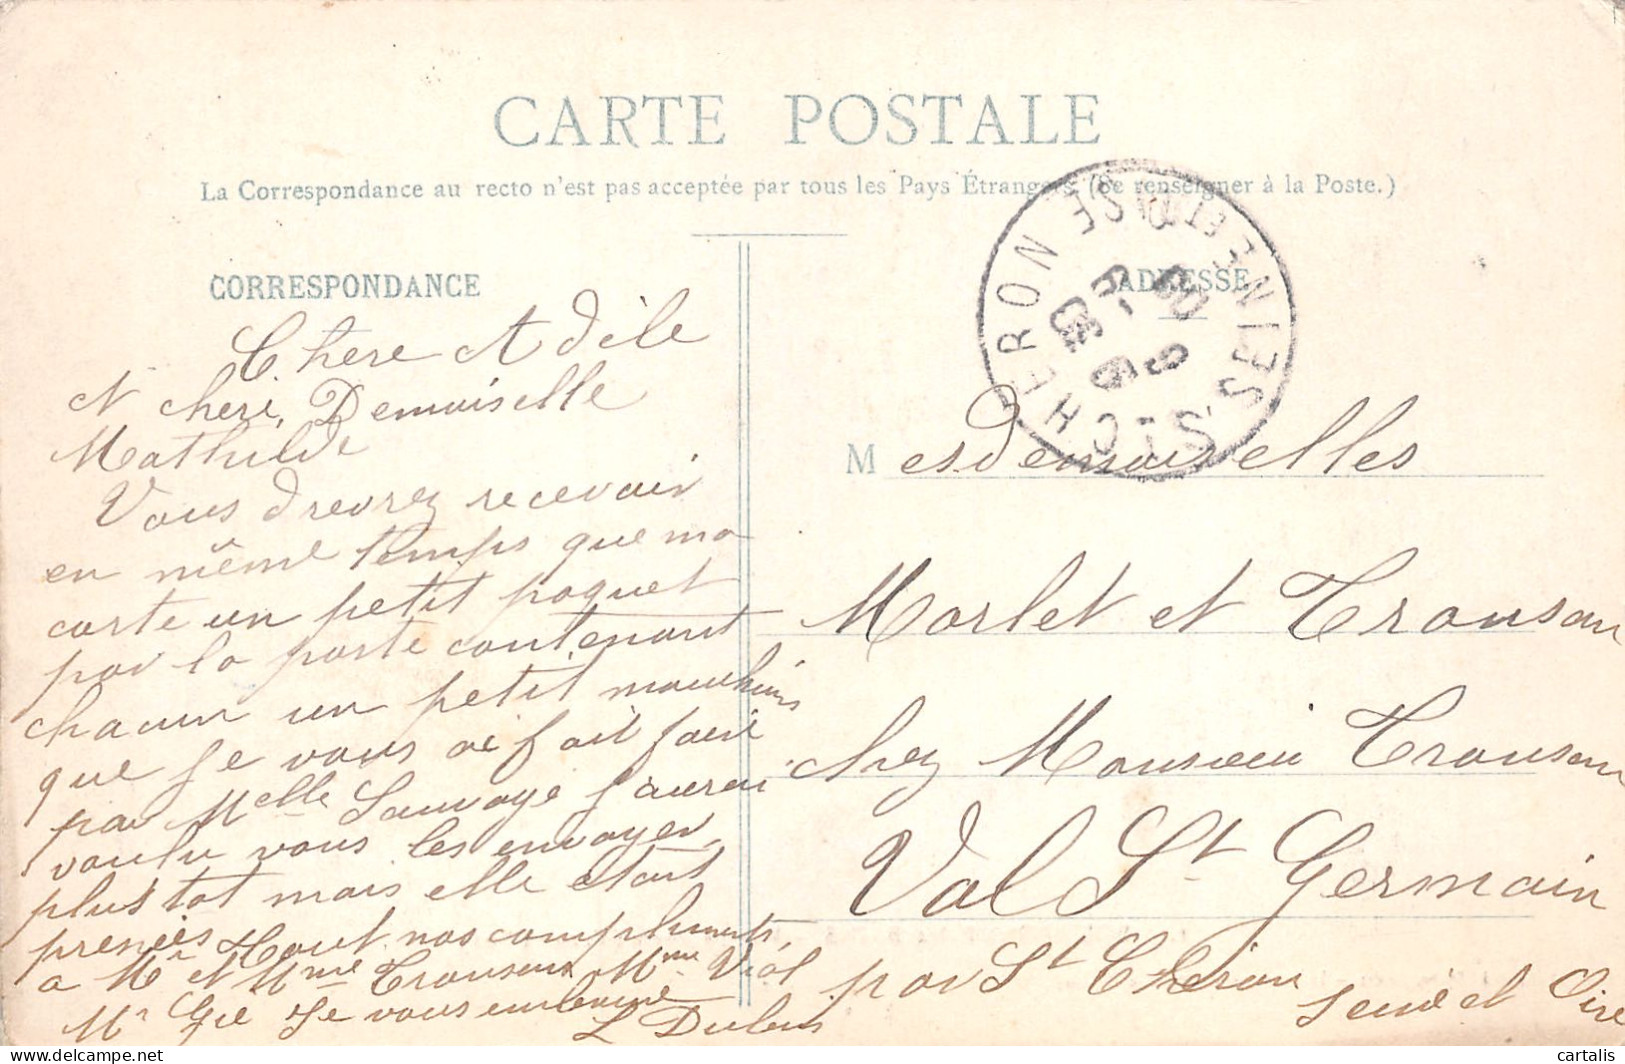 CARTE POSTALE
La Correspondance au recto n'est pas acceptée par tous les Pays Étrangers. (Se renseigner à la Poste.)
CORRESPONDANCE
Chere Adèle
et cheri Demoiselle
Mathilde
Vous drevrez recevoir
en même temps que ma
carte un petit paquet
par la poste contenant
chacun un petit
que je vous ai fait faire
par Melle Sauvage j'aurai
voulu vous les envoyer
plus tot mais elle etait
nos compliments
a Mr et Mme Trouseau Mme Vial
Mr Je vous embrasse
L Dubus
ADRESSE
Mesdemoiselles
Morlet et Trouseau
chez Monsieur Trouseau
Val St Germain
par St Cheron
Seine et Oise
ST CHERON
SEINE ET OISE
cartalis